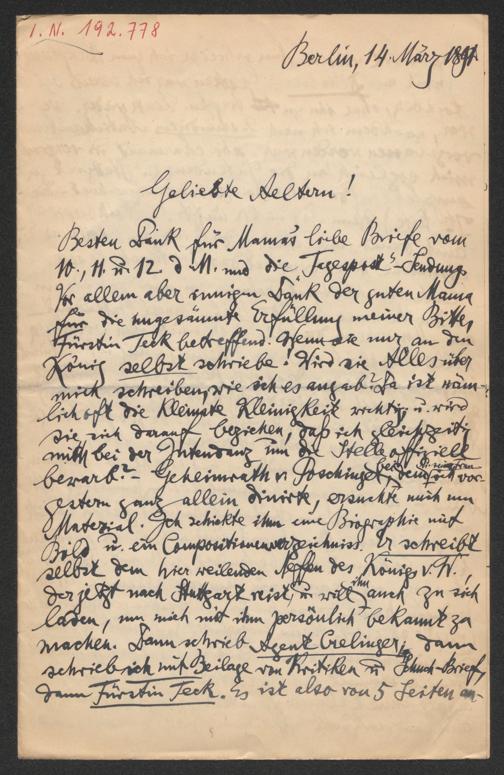 I. N. 192.778
Berlin, 14. März 1897
Geliebte Aeltern!
Besten Dank für Mama's liebe Briefe vom
10., 11. u. 12. d. M. und die "Tagespost"-Sendung.
Vor allem aber innigen Dank der guten Mama
für die ungesäumte Erfüllung meiner Bitte,
Fürstin Teck betreffend. Wenn sie nur an den
König selbst schriebe! Wird sie Alles über
mich schreiben, wie ich es angab? Es ist näm-
lich oft die kleinste Kleinigkeit wichtig u. wird
sie sich darauf beziehen, daß ich gleichzeitig
mich bei der Intendanz um die Stelle officiell
bewarb? - Geheimrath v. Poschinger, bei dem ich vor-
gestern ganz allein dinirte, ersuchte mich um
Material. Ich schickte ihm eine Biographie mit
Bild u. ein Compositionenverzeichniss. Er schreibt
selbst dem hier weilenden Neffen des Königs v. W.,
der jetzt nach Stuttgart reist, u. will ihn auch zu sich
laden, um mich mit ihm persönlich bekannt zu
machen. Dann schrieb Agent Crelinger, dann
schrieb ich mit Beilage von Kritiken u. Schuch-Brief,
dann Fürstin Teck. Es ist also von 5 Seiten an-